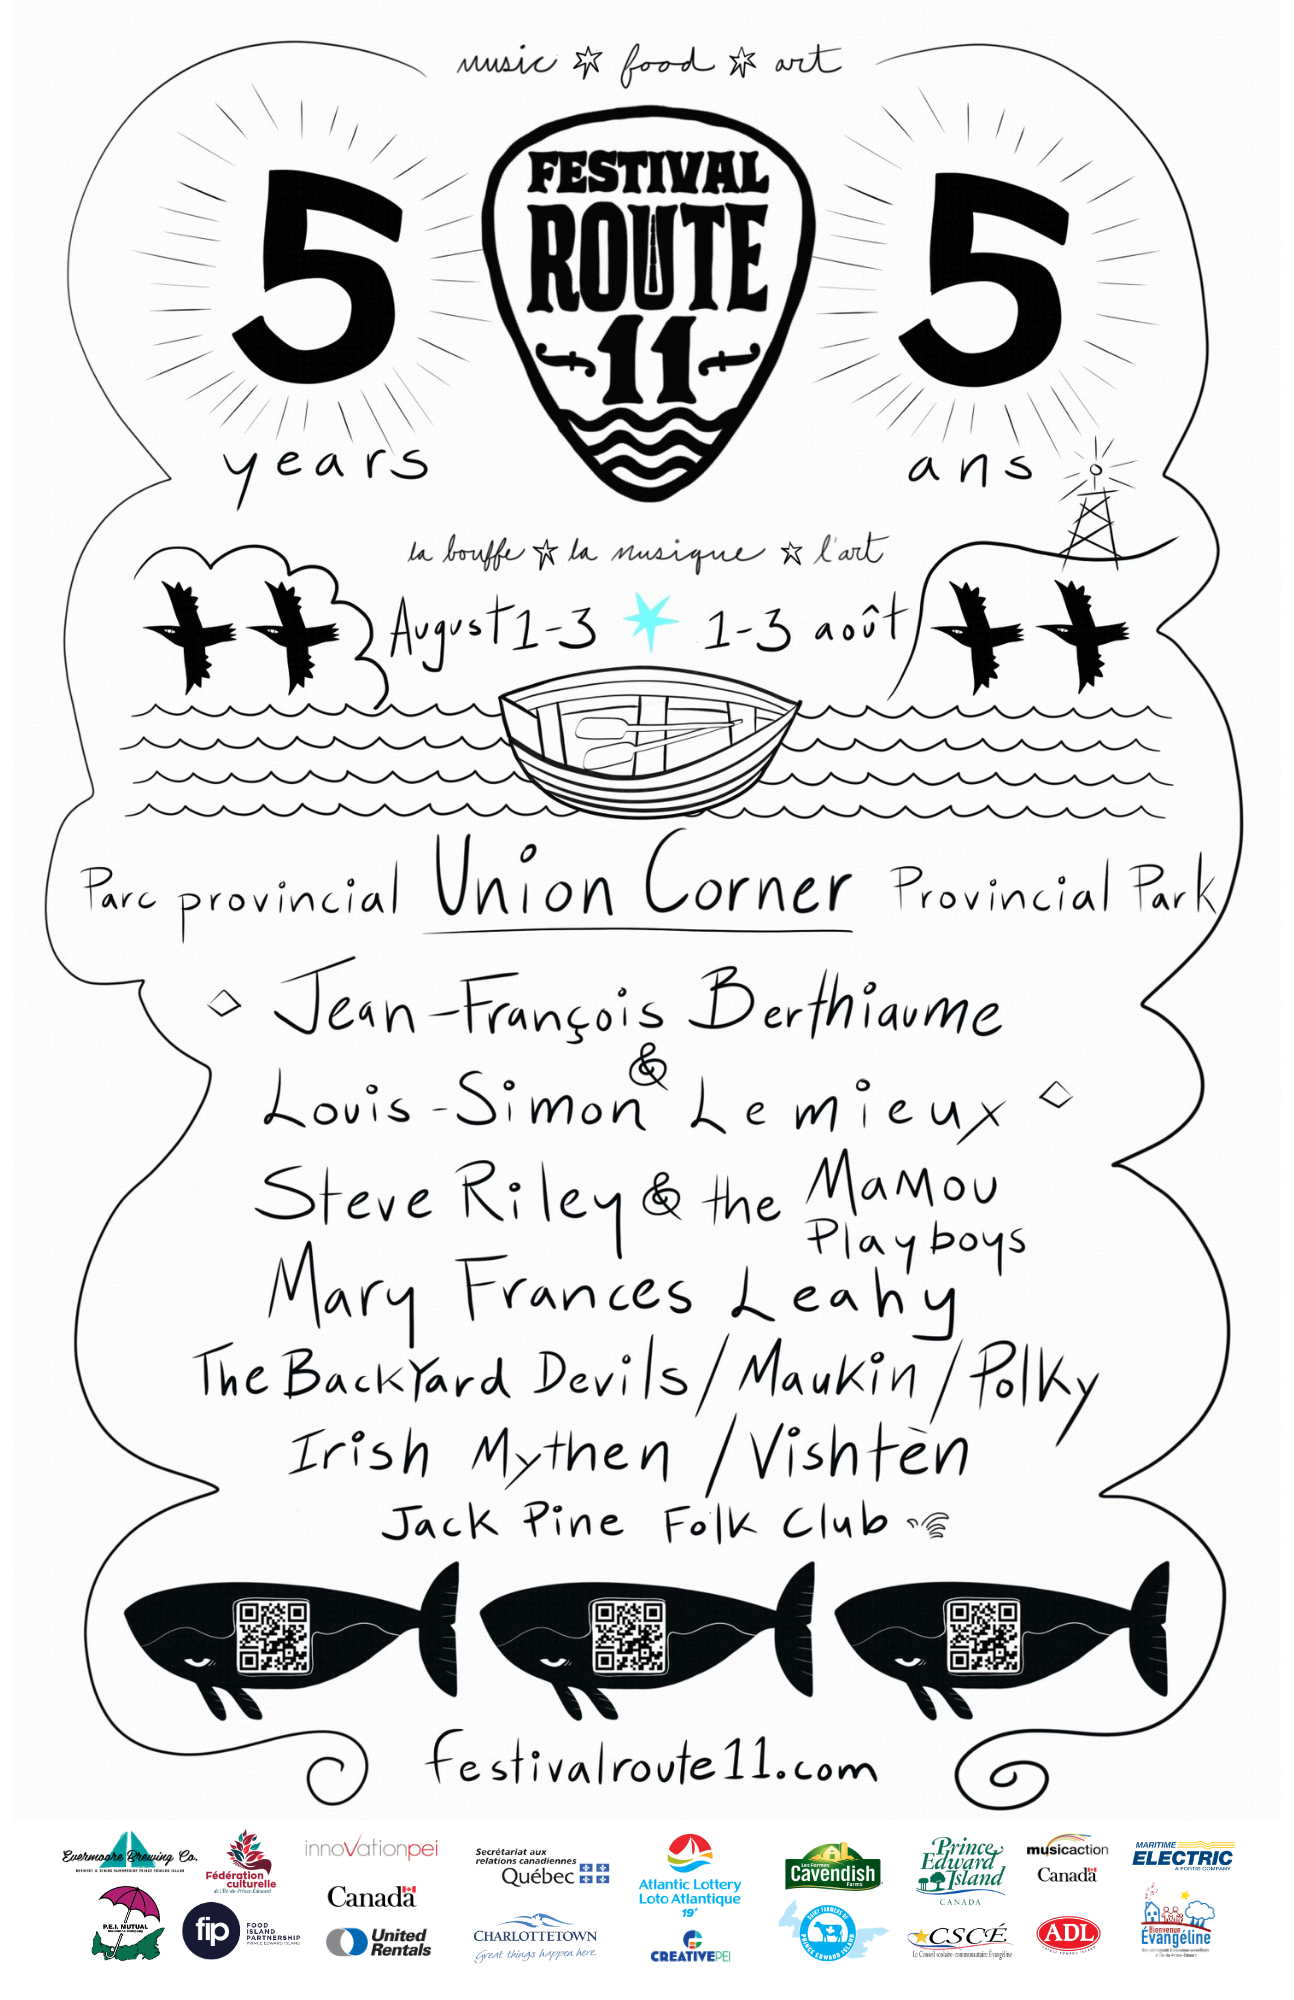 music ☆ food ☆ art
5 FESTIVAL 5
ROUTE
11
years ans
la bouffe ☆ la musique ☆ l'art
August 1-3 1-3 août
Parc provincial Union Corner Provincial Park
Jean-François Berthiaume
&
Louis-Simon Lemieux
Steve Riley & the Mamou
Playboys
Mary Frances Leahy
The BackYard Devils / Maukin / Polky
Irish Mythen / Vishtèn
Jack Pine Folk Club
festivalroute11.com
Evermoore Brewing Co.
Fédération
culturelle
de l'Île-du-Prince-Édouard
innoVationpei
Canada
Secrétariat aux
relations canadiennes
Québec
Atlantic Lottery
Loto Atlantique
19+
Les Fermes
Cavendish
Farms
Prince
Edward
Island
CANADA
musicaction
Canada
MARITIME
ELECTRIC
A FORTIS COMPANY
P.E.I. MUTUAL
fip FOOD
ISLAND
PARTNERSHIP
PRINCE EDWARD ISLAND
United
Rentals
CHARLOTTETOWN
Great things happen here
CREATIVEPEI
DAIRY FARMERS OF
PRINCE EDWARD ISLAND
CSCÉ
Le Conseil scolaire-communautaire Évangéline
ADL
PRINCE EDWARD ISLAND
Bienvenue
Évangéline